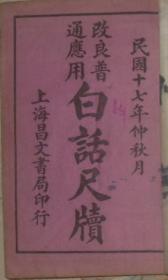 民國十七年仲秋月
改良普
通應用
白話尺牘
上海昌文書局印行